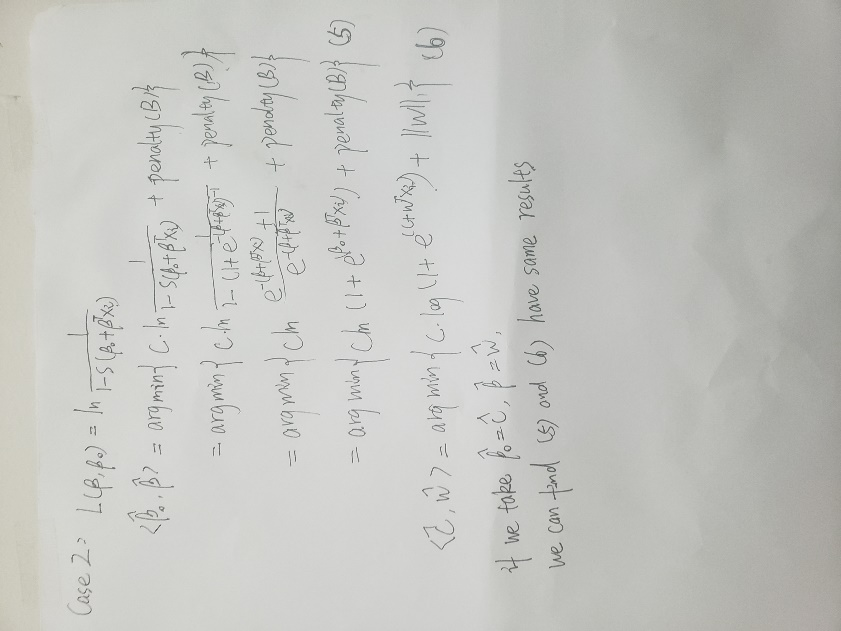 Case 2: L(β, β₀) = ln 1/(1-S(β₀+βᵀxᵢ))
<β̂₀, β̂> = argmin{ C·ln 1/(1-S(β₀+βᵀxᵢ)) + penalty(β)}
= argmin{ C·ln 1/(1-(1+e^-(β+βᵀxᵢ))^-1) + penalty(β)}
= argmin{ Cln (e^-(β+βᵀxᵢ)+1)/(e^-(β+βᵀxᵢ)) + penalty(β)}
= argmin{ Cln(1+e^(β₀+βᵀxᵢ)) + penalty(β)} (5)
<ĉ, ŵ> = argmin{ C·log(1+e^(c+wᵀxᵢ)) + ||w||₁} (6)
if we take β̂₀=ĉ, β̂=ŵ,
we can find (5) and (6) have same results